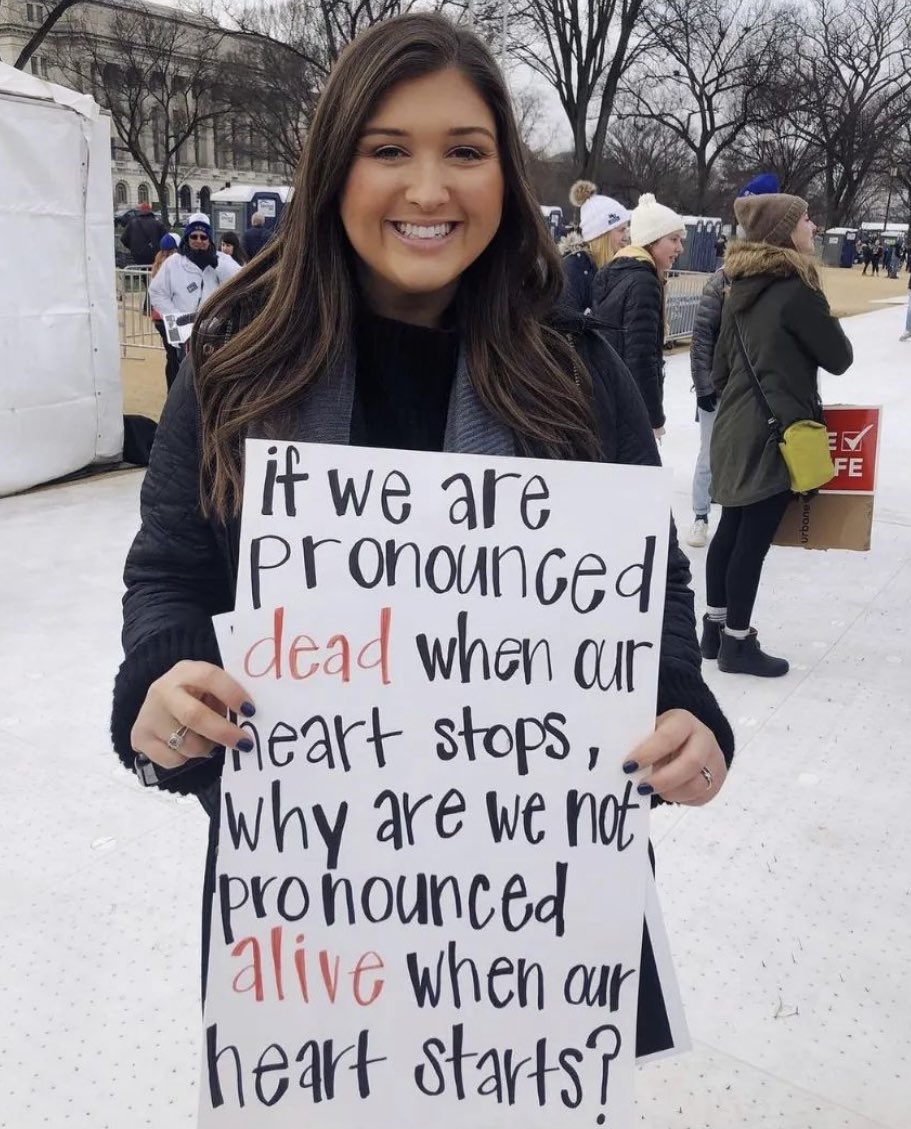 if we are
pronounced
dead when our
heart stops,
why are we not
pronounced
alive when our
heart starts?
FE
urbane